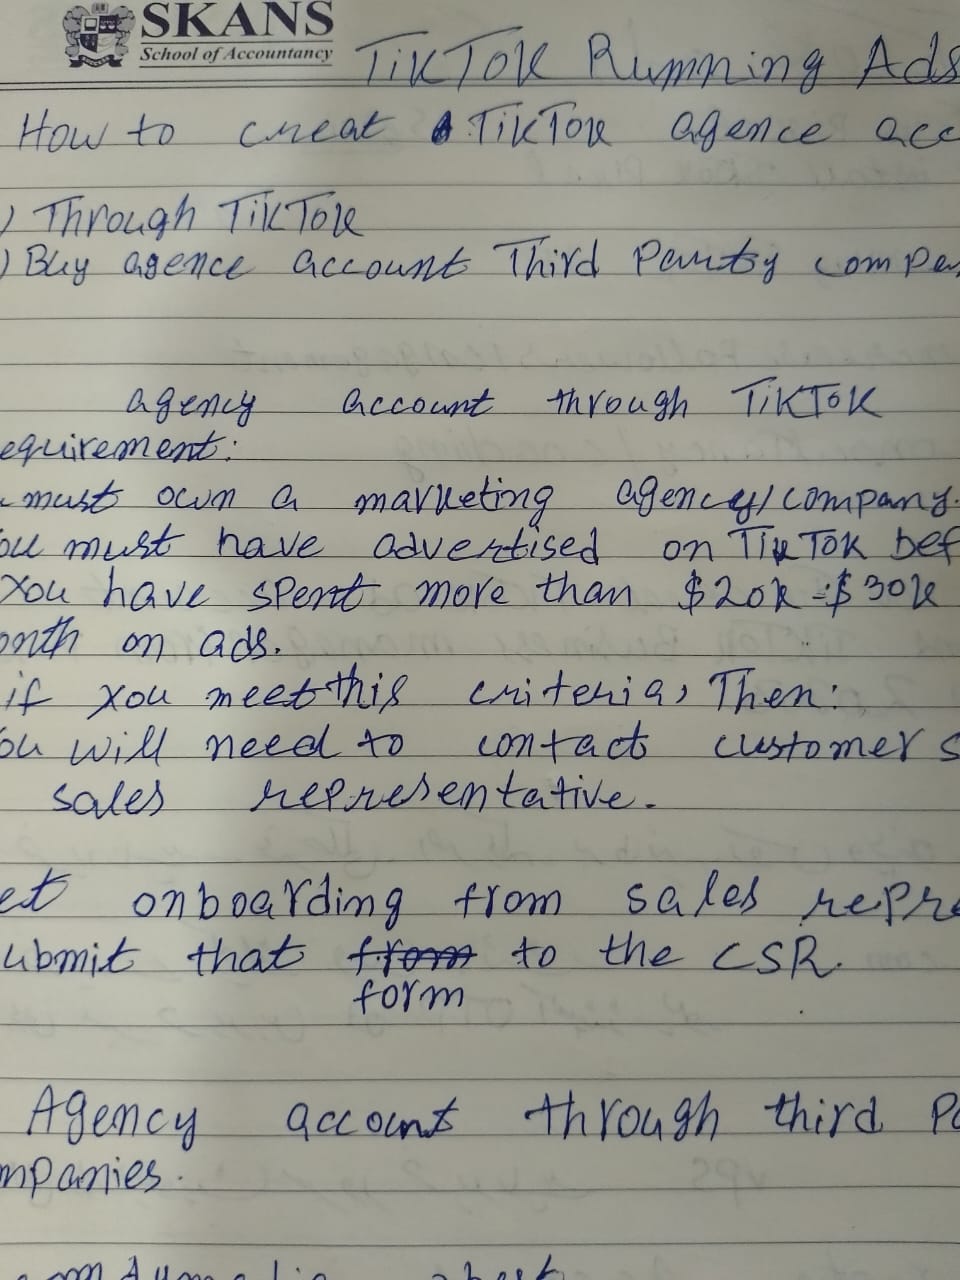 SKANS
School of Accountancy
TikTok Running Ads
How to creat TikTok agence acc
) Through TikTok
) Buy agence account Third Party compa
agency account through TikTok
equirement:
must own a marketing agency/company.
ou must have advertised on TikTok bef
You have spent more than $20k-$30k
onth on ads.
if you meet this criteria, Then:
ou will need to contact customer s
sales representative.
et onboarding from sales repre
ubmit that to the CSR.
form
Agency account through third Pa
mpanies.